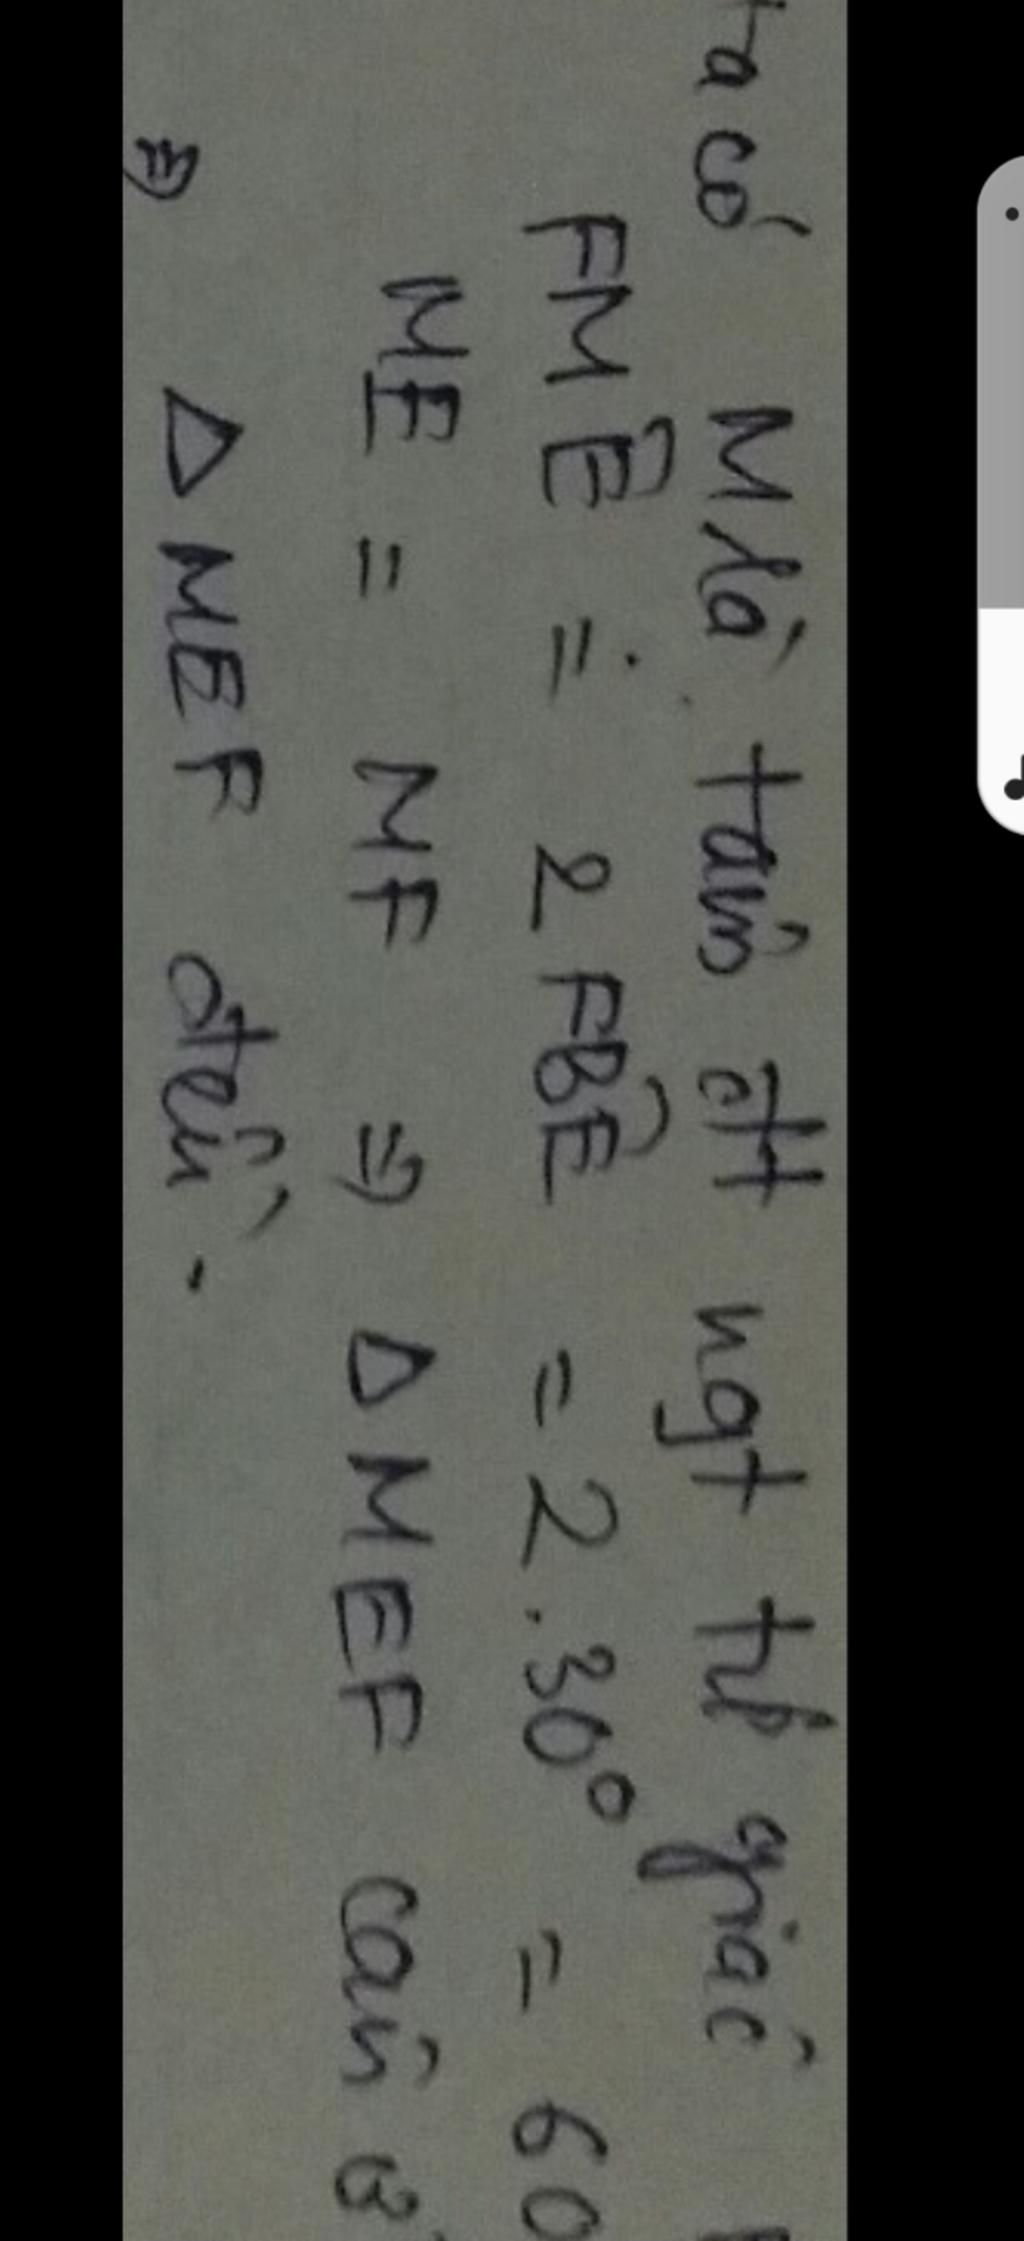 ta có M là tâm đtt ngt tứ giác
FMÊ = 2 FBÊ = 2.30° = 60
ME = MF ⇒ Δ MEF cân ở
⇒ Δ MEF đều.